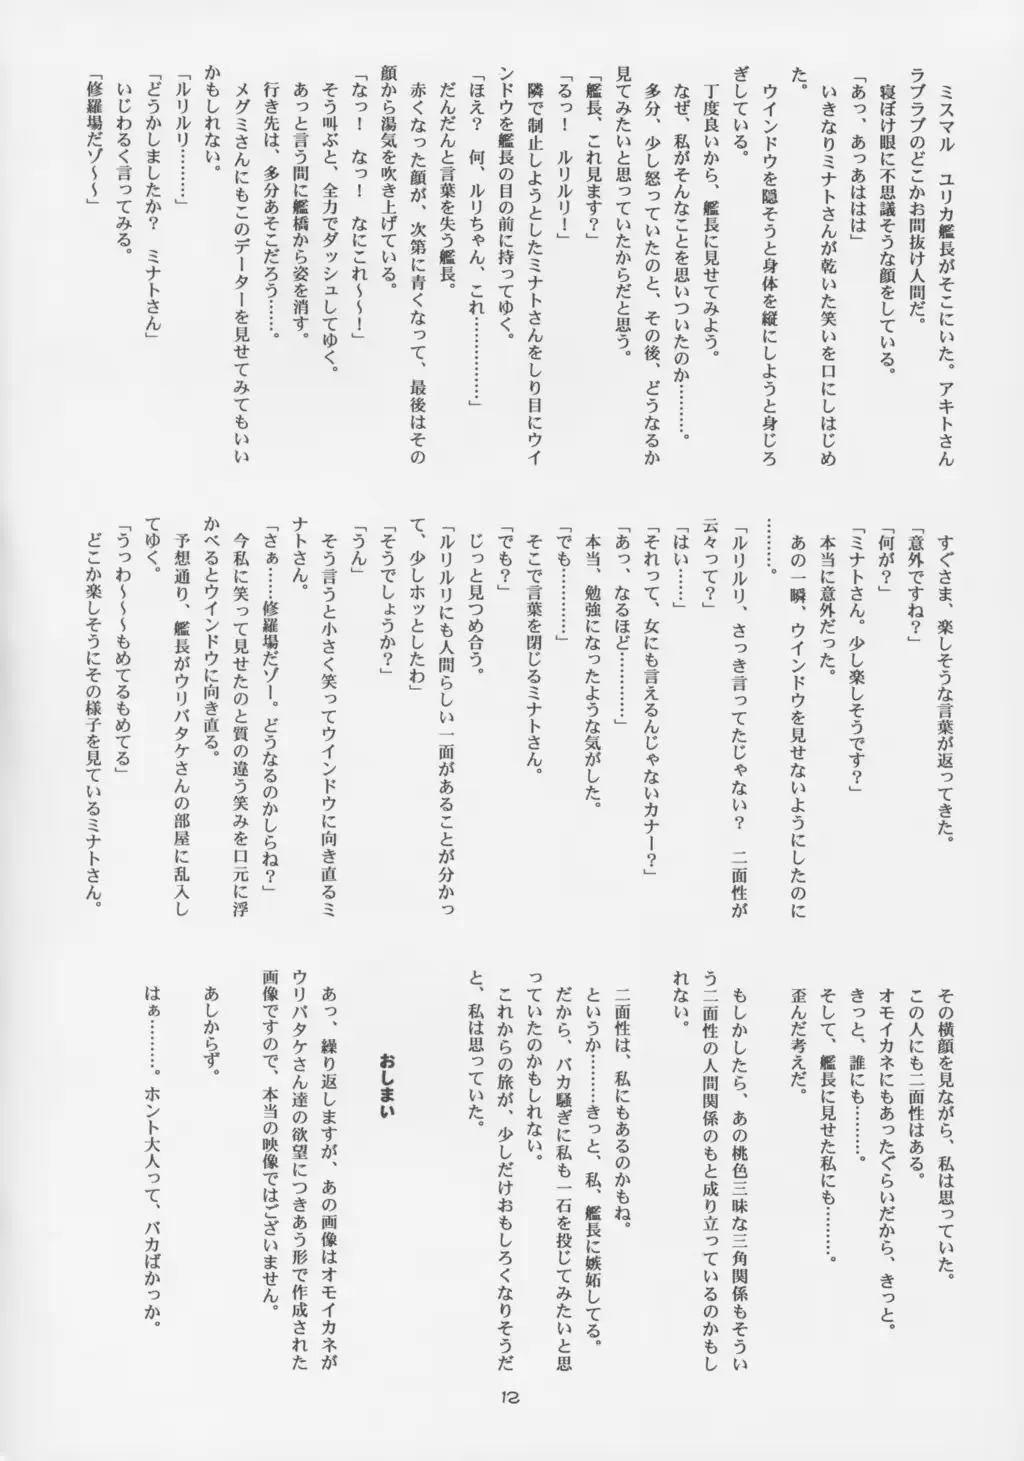 ミスマル　ユリカ艦長がそこにいた。アキトさん
ラブラブのどこかお間抜け人間だ。
　寝ぼけ眼に不思議そうな顔をしている。
「あっ、あっあははは」
　いきなりミナトさんが乾いた笑いを口にしはじめ
た。
　ウインドウを隠そうと身体を縦にしようと身じろ
ぎしている。
　丁度良いから、艦長に見せてみよう。
　なぜ、私がそんなことを思いついたのか…………。
　多分、少し怒っていたのと、その後、どうなるか
見てみたいと思っていたからだと思う。
「艦長、これ見ます？」
「るっ！　ルリルリ！」
　隣で制止しようとしたミナトさんをしり目にウイ
ンドウを艦長の目の前に持ってゆく。
「ほえ？　何、ルリちゃん、これ………………」
　だんだんと言葉を失う艦長。
　赤くなった顔が、次第に青くなって、最後はその
顔から湯気を吹き上げている。
「なっ！　なっ！　なにこれ～～！」
　そう叫ぶと、全力でダッシュしてゆく。
　あっと言う間に艦橋から姿を消す。
　行き先は、多分あそこだろう……。
　メグミさんにもこのデーターを見せてみてもいい
かもしれない。
「ルリルリ………」
「どうかしましたか？　ミナトさん」
　いじわるく言ってみる。
「修羅場だゾ～～」
　すぐさま、楽しそうな言葉が返ってきた。
「意外ですね？」
「何が？」
「ミナトさん。少し楽しそうです？」
　本当に意外だった。
　あの一瞬、ウインドウを見せないようにしたのに
…………。
「ルリルリ、さっき言ってたじゃない？　二面性が
云々って？」
「はい……」
「それって、女にも言えるんじゃないカナー？」
「あっ、なるほど…………」
　本当、勉強になったような気がした。
「でも…………」
　そこで言葉を閉じるミナトさん。
「でも？」
　じっと見つめ合う。
「ルリルリにも人間らしい一面があることが分かっ
て、少しホッとしたわ」
「そうでしょうか？」
「うん」
　そう言うと小さく笑ってウインドウに向き直るミ
ナトさん。
「さぁ……修羅場だゾー。どうなるのかしらね？」
　今私に笑って見せたのと質の違う笑みを口元に浮
かべるとウインドウに向き直る。
　予想通り、艦長がウリバタケさんの部屋に乱入し
てゆく。
「うっわ～～～もめてるもめてる」
　どこか楽しそうにその様子を見ているミナトさん。
　その横顔を見ながら、私は思っていた。
　この人にも二面性はある。
　オモイカネにもあったぐらいだから、きっと。
　きっと、誰にも………。
　そして、艦長に見せた私にも…………。
　歪んだ考えだ。
　もしかしたら、あの桃色三昧な三角関係もそうい
う二面性の人間関係のもと成り立っているのかもし
れない。
　二面性は、私にもあるのかもね。
　というか………きっと、私、艦長に嫉妬してる。
　だから、バカ騒ぎに私も一石を投じてみたいと思
っていたのかもしれない。
　これからの旅が、少しだけおもしろくなりそうだ
と、私は思っていた。
おしまい
　あっ、繰り返しますが、あの画像はオモイカネが
ウリバタケさん達の欲望につきあう形で作成された
画像ですので、本当の映像ではございません。
　あしからず。
　はぁ………。ホント大人って、バカばかっか。
12